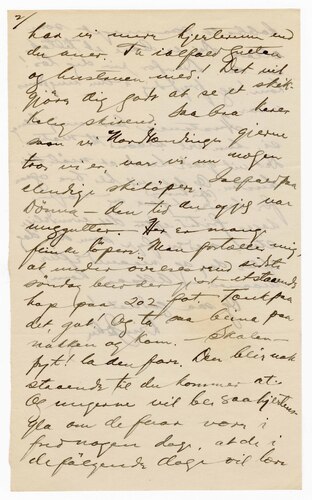 2/
har vi mere hjerterum end
du aner. Ta ialfald gutten
og husbonden med! Det vil
gjøre dig godt at se et skik-
kelig skirend. Saa bra karer
som vi Nordlændinger gjerne
tror vi er, var vi nu nogen
elendige skiløpere. Ialfald paa
Dønna — den tid du og jeg var
smågutter. — Her er mang
feine løpere. Man fortæller mig,
at under øvelsesrend sidste
søndag blev der gjort et staaende
hop paa 202 fot. — Tænk paa
det, gut! Og ta saa beina paa
nakken og kom. — Skalen —
pyt! la den fare. Den blir nok
staaende til du kommer at.
Og ungerne vil bli saa hjertens
gla om de faar være i
fred nogen dage, at de i
de følgende dage vil lære